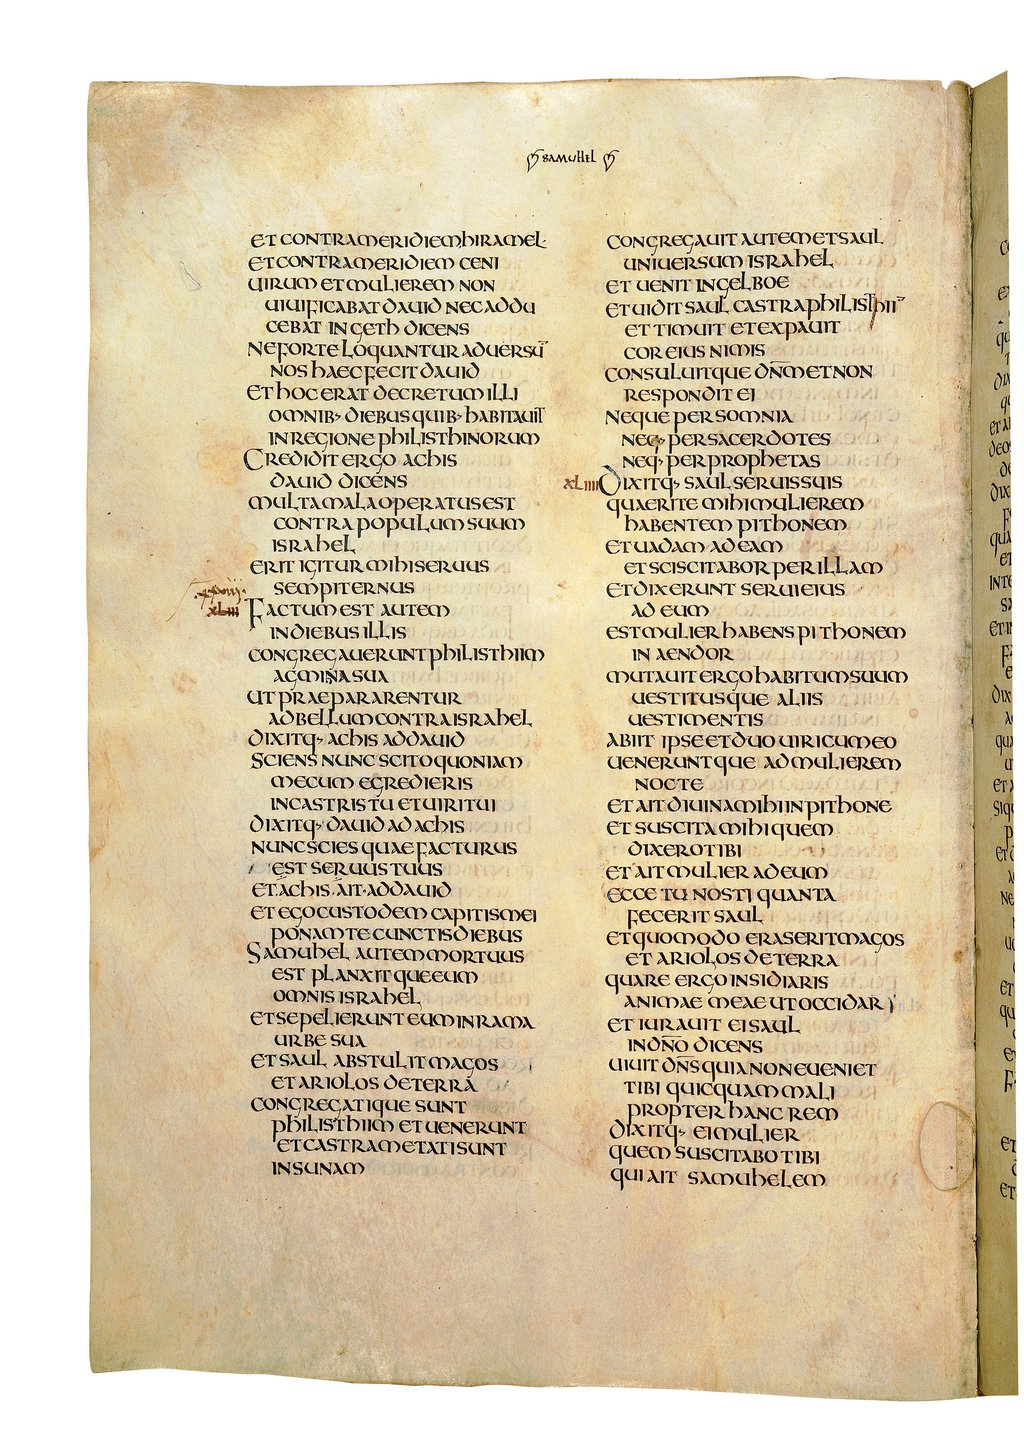 SAMUHEL
ET CONTRA MERIDIEM HIRAMEL
ET CONTRA MERIDIEM CENI
UIRUM ET MULIEREM NON
UIUIFICABAT DAUID NEC ADDU
CEBAT IN GETH DICENS
NE FORTE LOQUANTUR ADUERSŪ
NOS HAEC FECIT DAUID
ET HOC ERAT DECRETUM ILLI
OMNIB· DIEBUS QUIB· HABITAUIT
IN REGIONE PHILISTHINORUM
CREDIDIT ERGO ACHIS
DAUID DICENS
MULTA MALA OPERATUS EST
CONTRA POPULUM SUUM
ISRAHEL
ERIT IGITUR MIHI SERUUS
SEMPITERNUS
XLIII FACTUM EST AUTEM
IN DIEBUS ILLIS
CONGREGAUERUNT PHILISTHIIM
AGMINA SUA
UT PRAEPARARENTUR
AD BELLUM CONTRA ISRAHEL
DIXITQ· ACHIS AD DAUID
SCIENS NUNC SCITO QUONIAM
MECUM EGREDIERIS
IN CASTRIS TU ET UIRI TUI
DIXITQ· DAUID AD ACHIS
NUNC SCIES QUAE FACTURUS
EST SERUUS TUUS
ET ACHIS AIT AD DAUID
ET EGO CUSTODEM CAPITIS MEI
PONAM TE CUNCTIS DIEBUS
SAMUHEL AUTEM MORTUUS
EST PLANXITQUE EUM
OMNIS ISRAHEL
ET SEPELIERUNT EUM IN RAMA
URBE SUA
ET SAUL ABSTULIT MAGOS
ET ARIOLOS DE TERRA
CONGREGATIQUE SUNT
PHILISTHIIM ET UENERUNT
ET CASTRAMETATI SUNT
IN SUNAM
CONGREGAUIT AUTEM ET SAUL
UNIUERSUM ISRAHEL
ET UENIT IN GELBOE
ET UIDIT SAUL CASTRA PHILISTHII
ET TIMUIT ET EXPAUIT
COR EIUS NIMIS
CONSULUITQUE DN̄M ET NON
RESPONDIT EI
NEQUE PER SOMNIA
NEQ· PER SACERDOTES
NEQ· PER PROPHETAS
XLIIII DIXITQ· SAUL SERUIS SUIS
QUAERITE MIHI MULIEREM
HABENTEM PITHONEM
ET UADAM AD EAM
ET SCISCITABOR PER ILLAM
ET DIXERUNT SERUI EIUS
AD EUM
EST MULIER HABENS PITHONEM
IN AENDOR
MUTAUIT ERGO HABITUM SUUM
UESTITUSQUE ALIIS
UESTIMENTIS
ABIIT IPSE ET DUO UIRI CUM EO
UENERUNTQUE AD MULIEREM
NOCTE
ET AIT DIUINA MIHI IN PITHONE
ET SUSCITA MIHI QUEM
DIXERO TIBI
ET AIT MULIER AD EUM
ECCE TU NOSTI QUANTA
FECERIT SAUL
ET QUOMODO ERASERIT MAGOS
ET ARIOLOS DE TERRA
QUARE ERGO INSIDIARIS
ANIMAE MEAE UT OCCIDAR
ET IURAUIT EI SAUL
IN DN̄O DICENS
UIUIT DN̄S QUIA NON EUENIET
TIBI QUICQUAM MALI
PROPTER HANC REM
DIXITQ· EI MULIER
QUEM SUSCITABO TIBI
QUI AIT SAMUHELEM